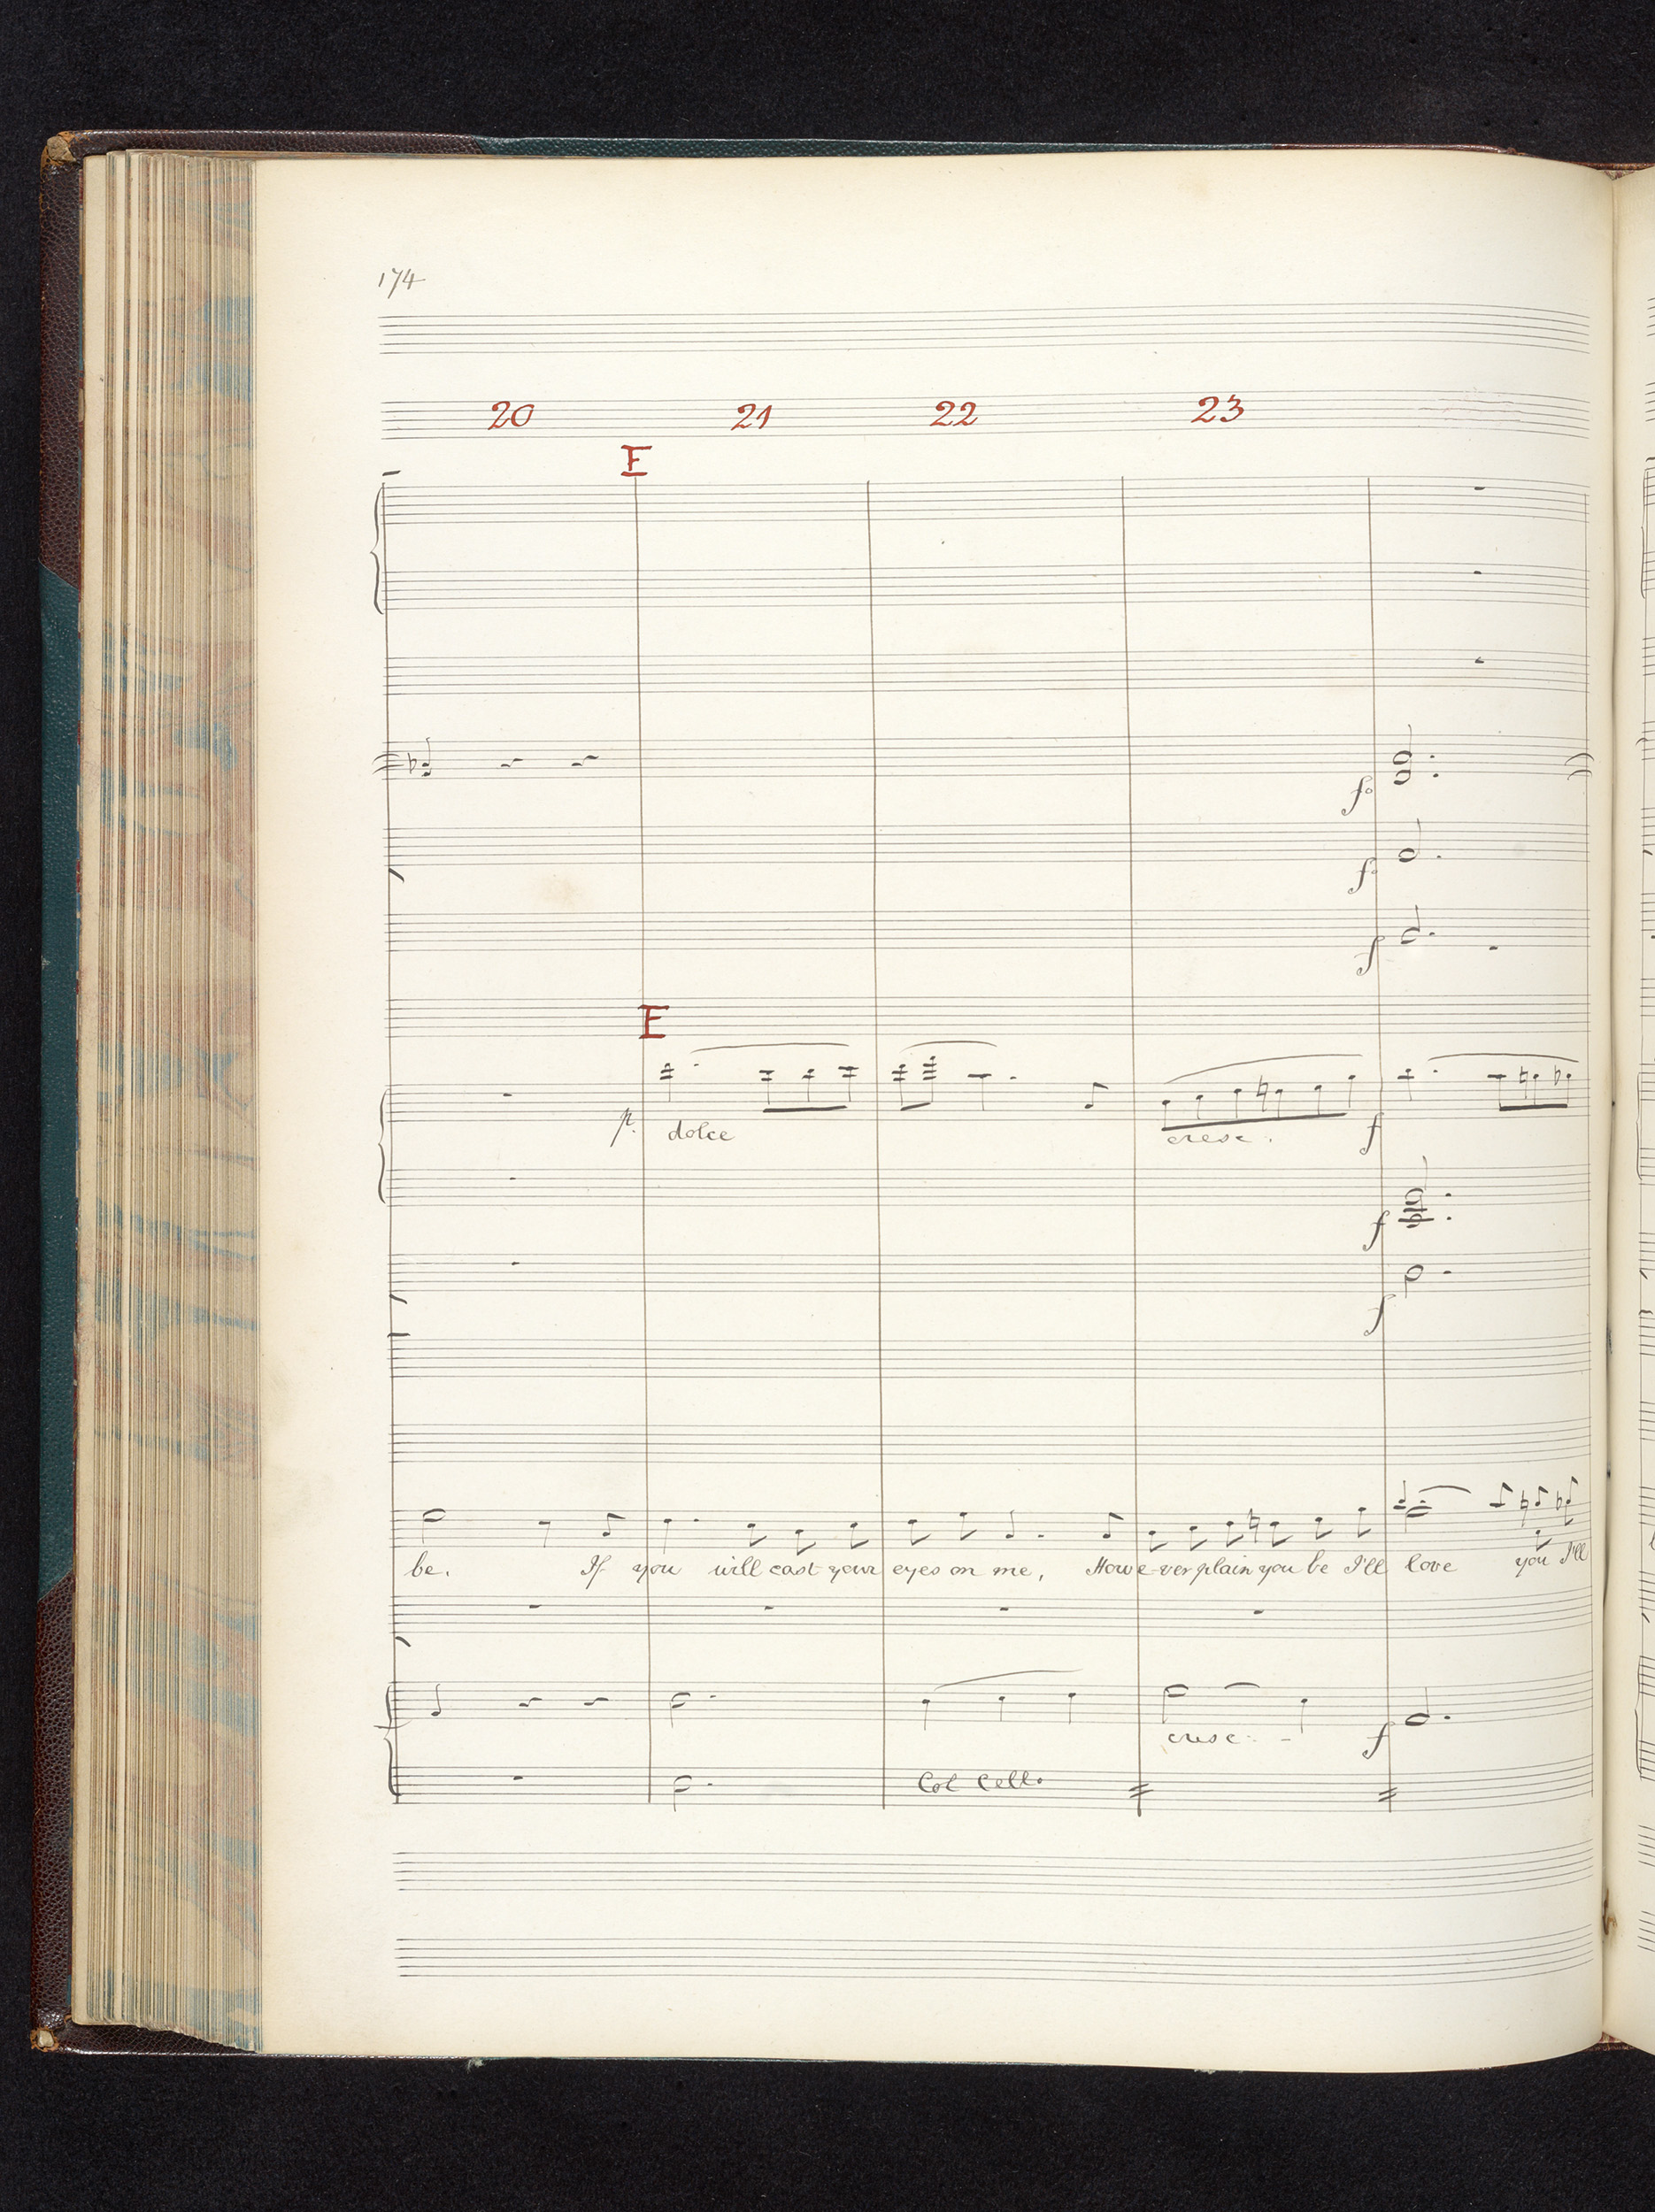 174
20 21 22 23
E
f
f
f
E
p. dolce cresc. f
f
f
be. If you will cast your eyes on me, How e-ver plain you be I'll love you I'll
cresc. - f
Col Cello